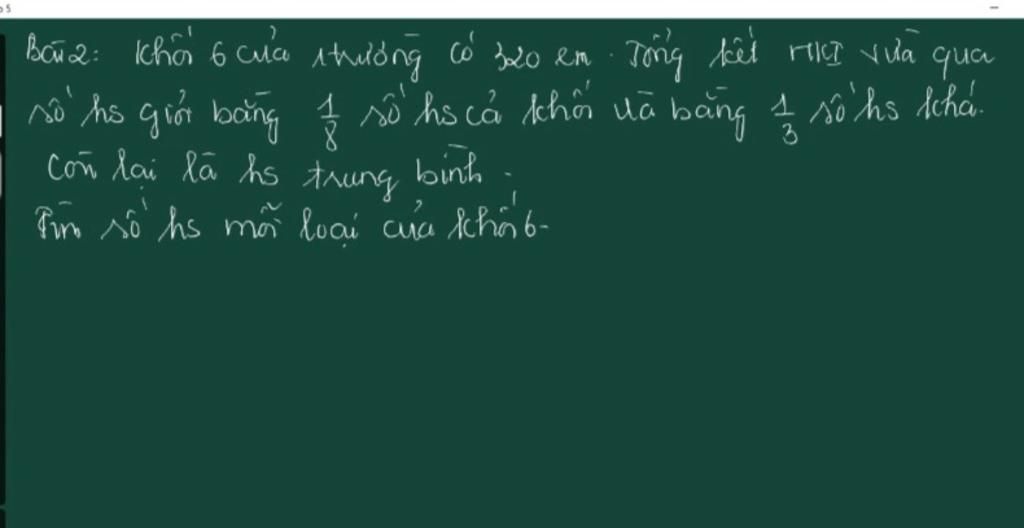 Bài 2: Khối 6 của trường có 320 em. Tổng kết HKI vừa qua
số hs giỏi bằng 1/8 số hs cả khối và bằng 1/3 số hs khá.
Còn lại là hs trung bình.
Tìm số hs mỗi loại của khối 6.